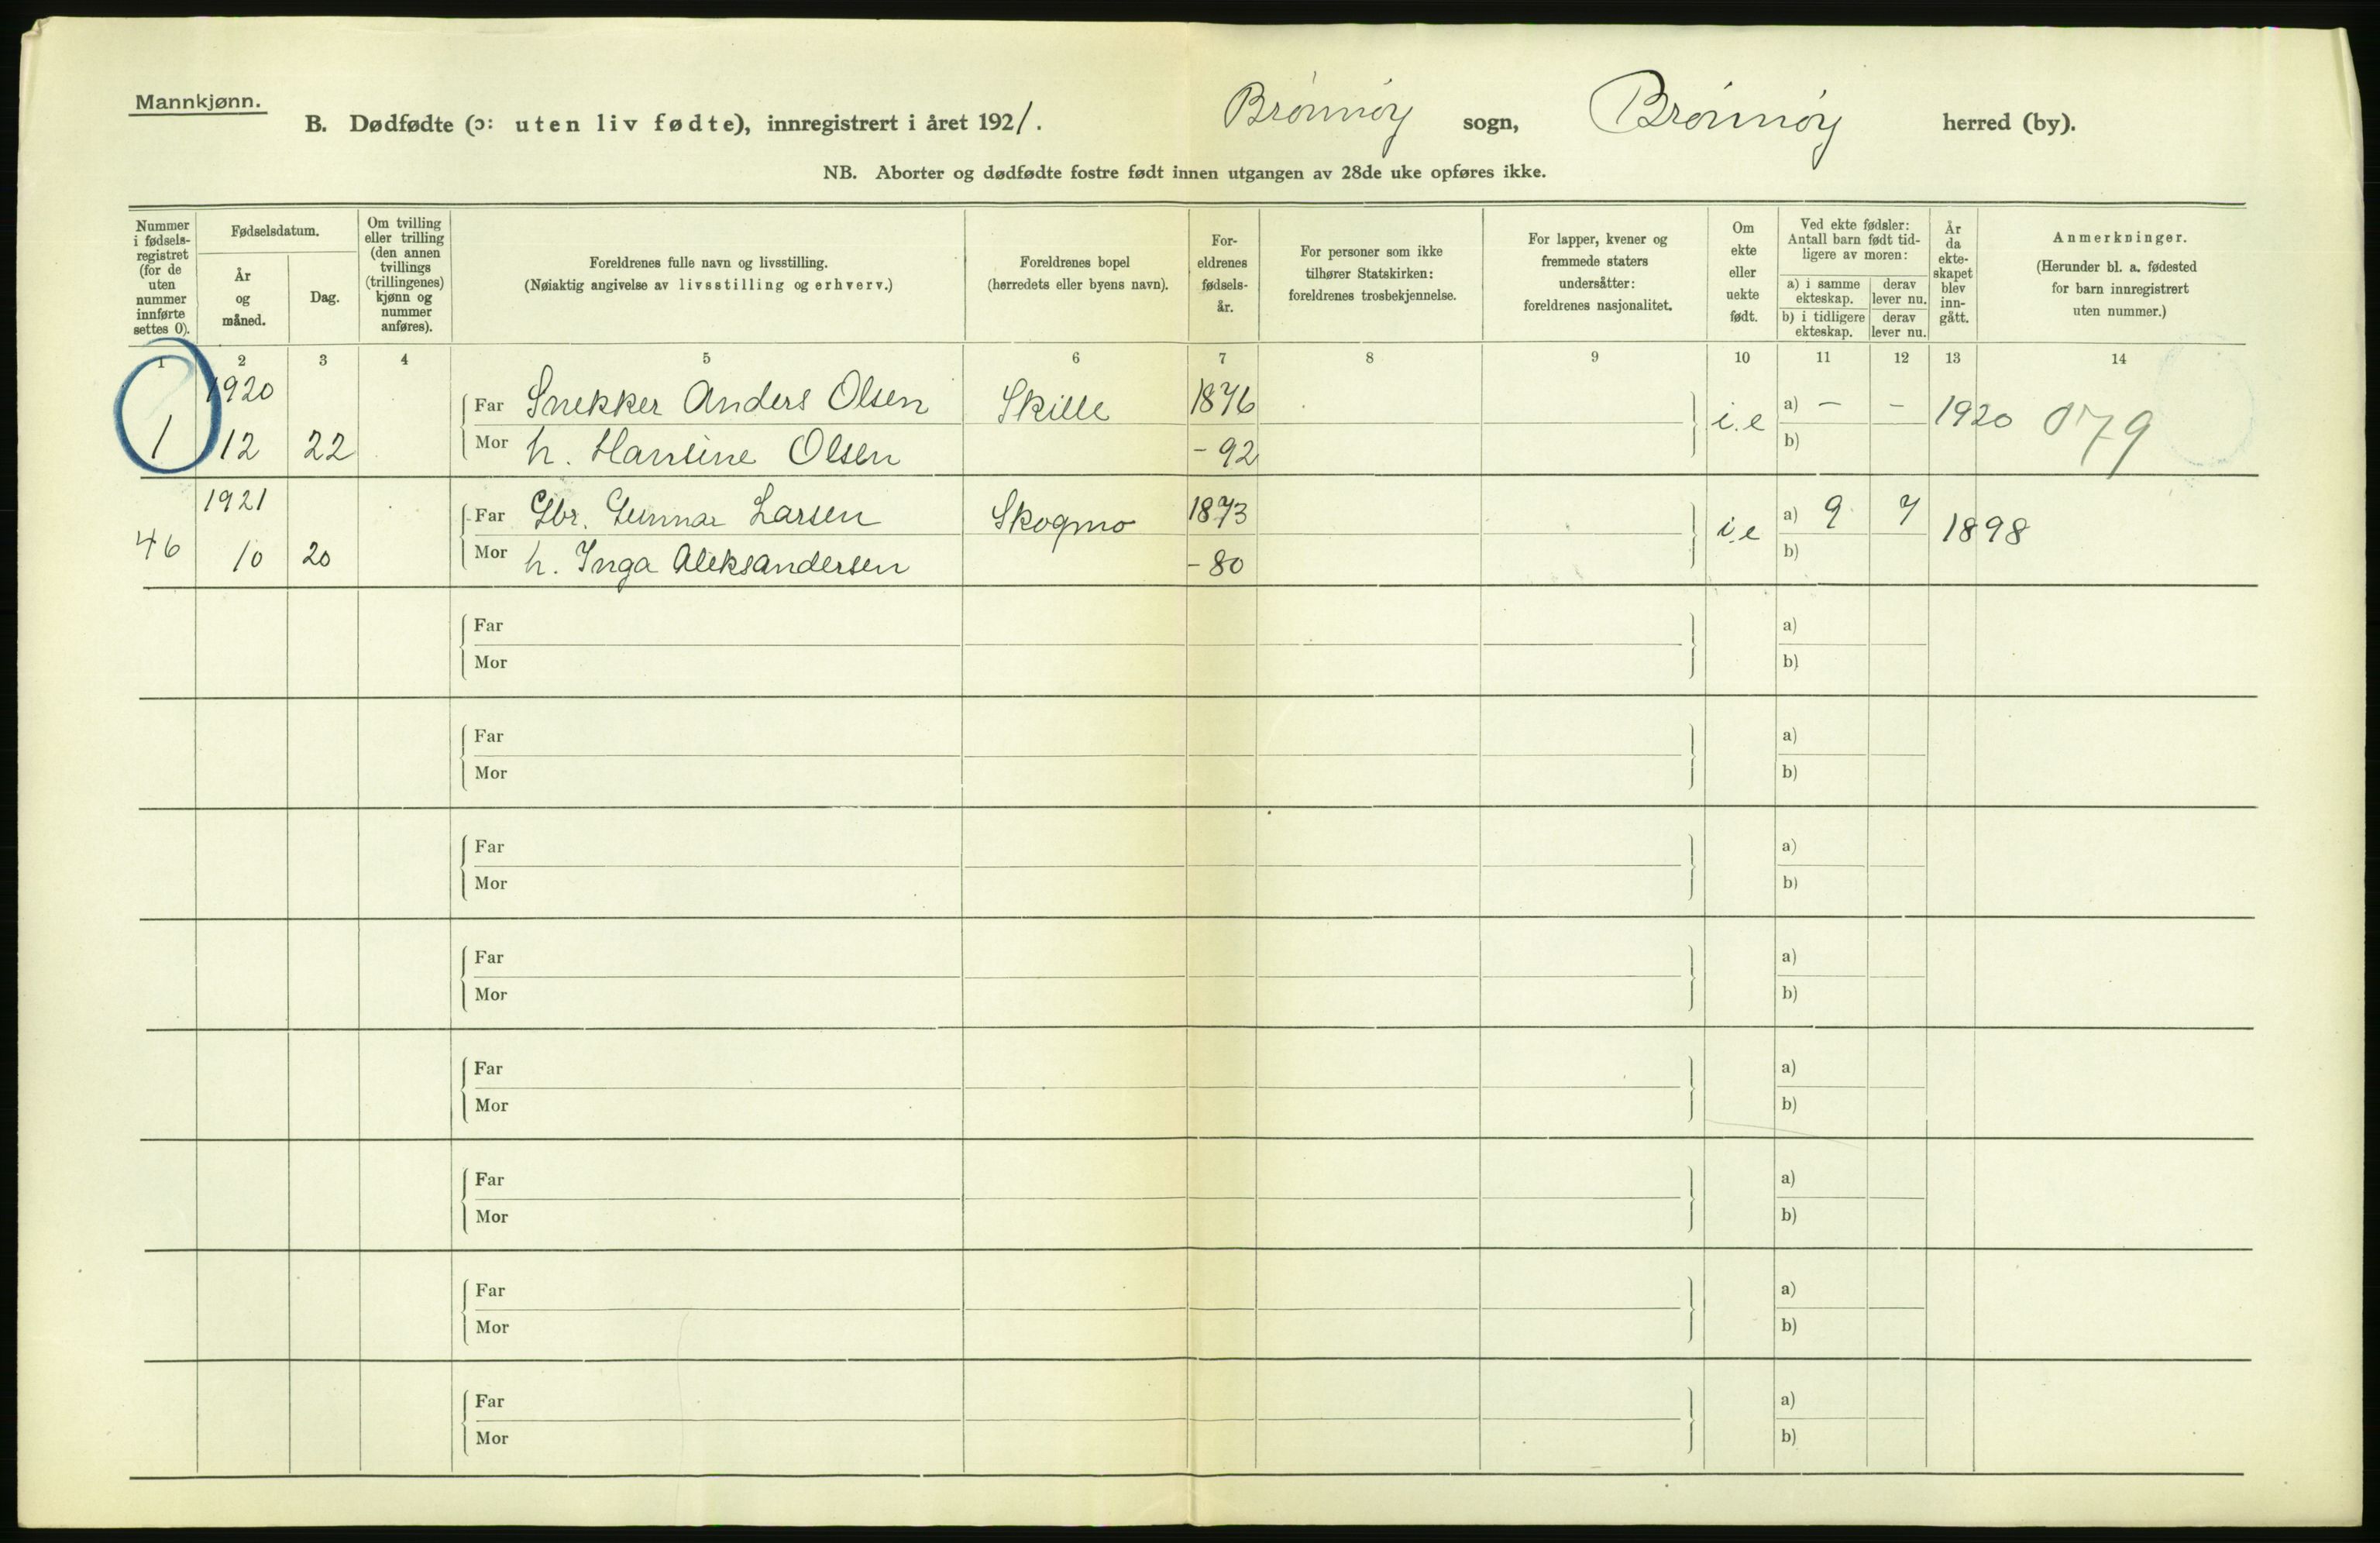 Mannkjønn.
B. Dødfødte (ɔ: uten liv fødte), innregistrert i året 1921. Brønnøy sogn, Brønnøy herred (by).
NB. Aborter og dødfødte fostre født innen utgangen av 28de uke opføres ikke.
Nummer i fødselsregistret (for de uten nummer innførte settes 0).
Fødselsdatum.
År og måned.
Dag.
Om tvilling eller trilling (den annen tvillings (trillingenes) kjønn og nummer anføres).
Foreldrenes fulle navn og livsstilling.
(Nøiaktig angivelse av livsstilling og erhverv.)
Foreldrenes bopel
(herredets eller byens navn).
Foreldrenes fødselsår.
For personer som ikke tilhører Statskirken: foreldrenes trosbekjennelse.
For lapper, kvener og fremmede staters undersåtter: foreldrenes nasjonalitet.
Om ekte eller uekte født.
Ved ekte fødsler: Antall barn født tidligere av moren:
a) i samme ekteskap. derav lever nu.
b) i tidligere ekteskap. derav lever nu.
År da ekteskapet blev inngått.
Anmerkninger.
(Herunder bl. a. fødested for barn innregistrert uten nummer.)
1 2 3 4 5 6 7 8 9 10 11 12 13 14
1920
Far Snekker Anders Olsen Skille 1876 i.e a) – – 1920 079
1 12 22 Mor h. Hansine Olsen - 92 b)
1921
Far Gbr. Gunnar Larsen Skogmo 1873 i.e a) 9 7 1898
46 10 20 Mor h. Inga Aleksandersen - 80 b)
Far a)
Mor b)
Far a)
Mor b)
Far a)
Mor b)
Far a)
Mor b)
Far a)
Mor b)
Far a)
Mor b)
Far a)
Mor b)
Far a)
Mor b)